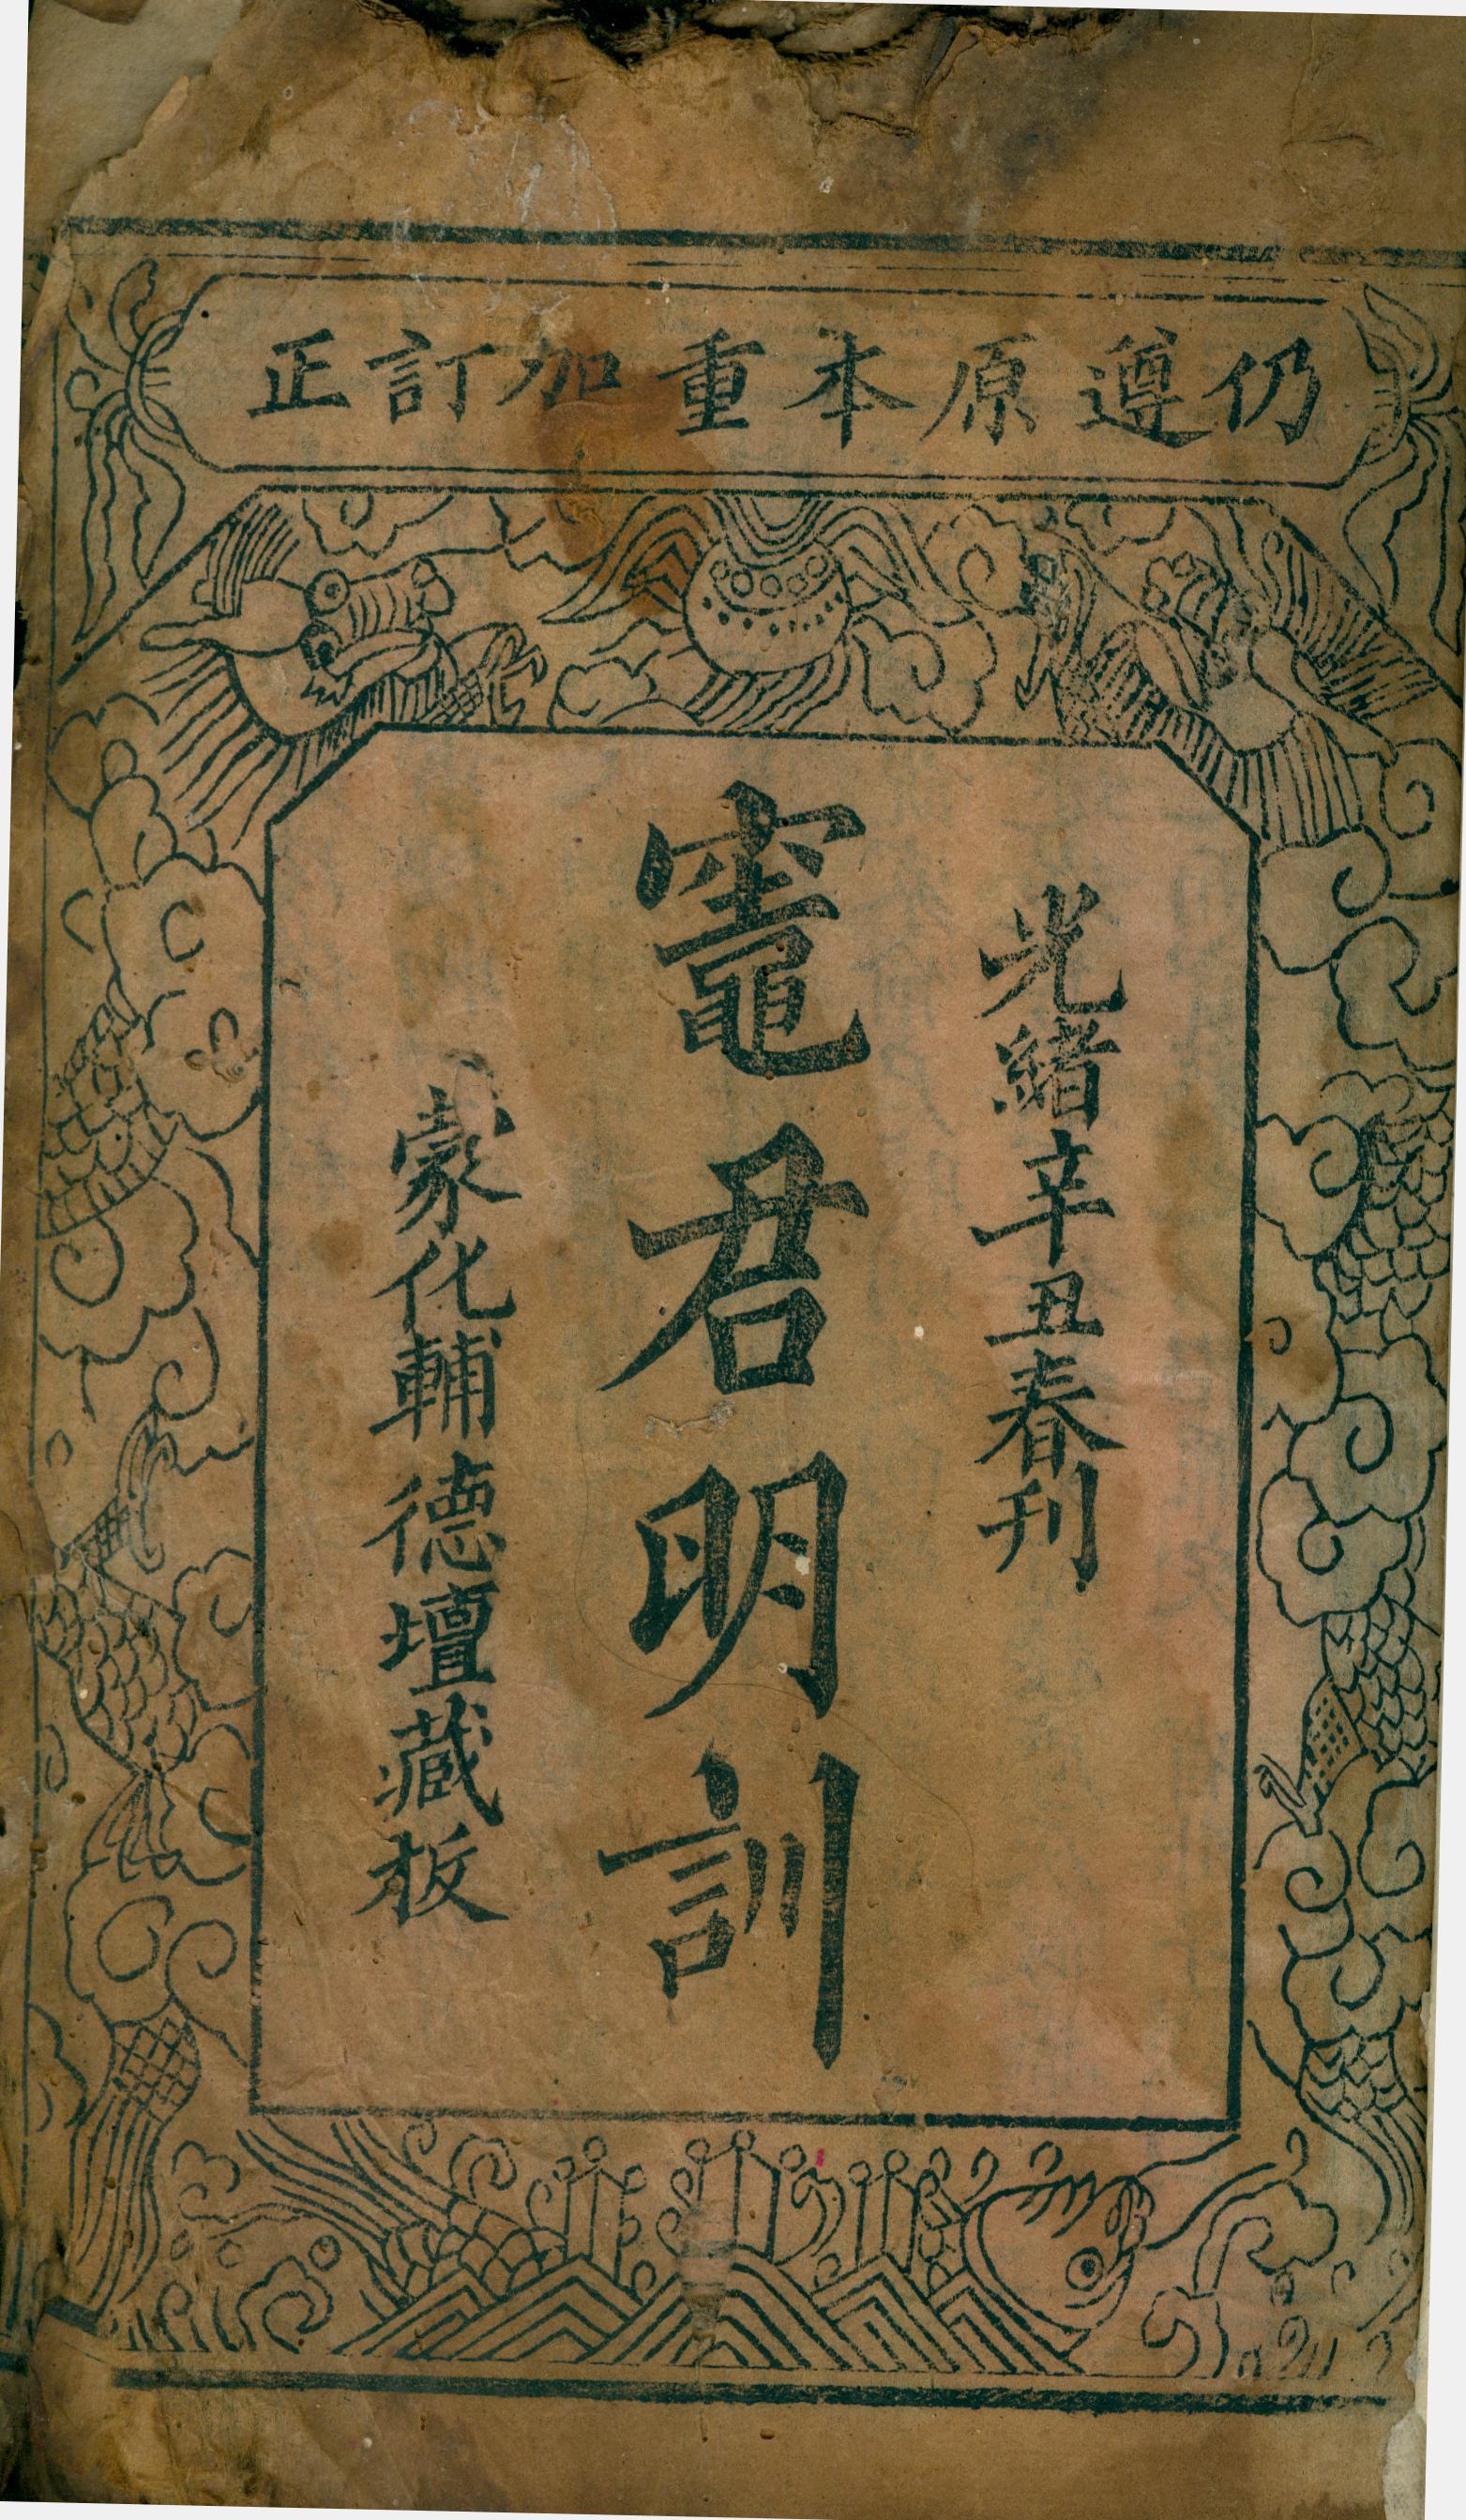 仍遵原本重加訂正
光緒辛丑春刊
竈君明訓
蒙化輔德壇藏板